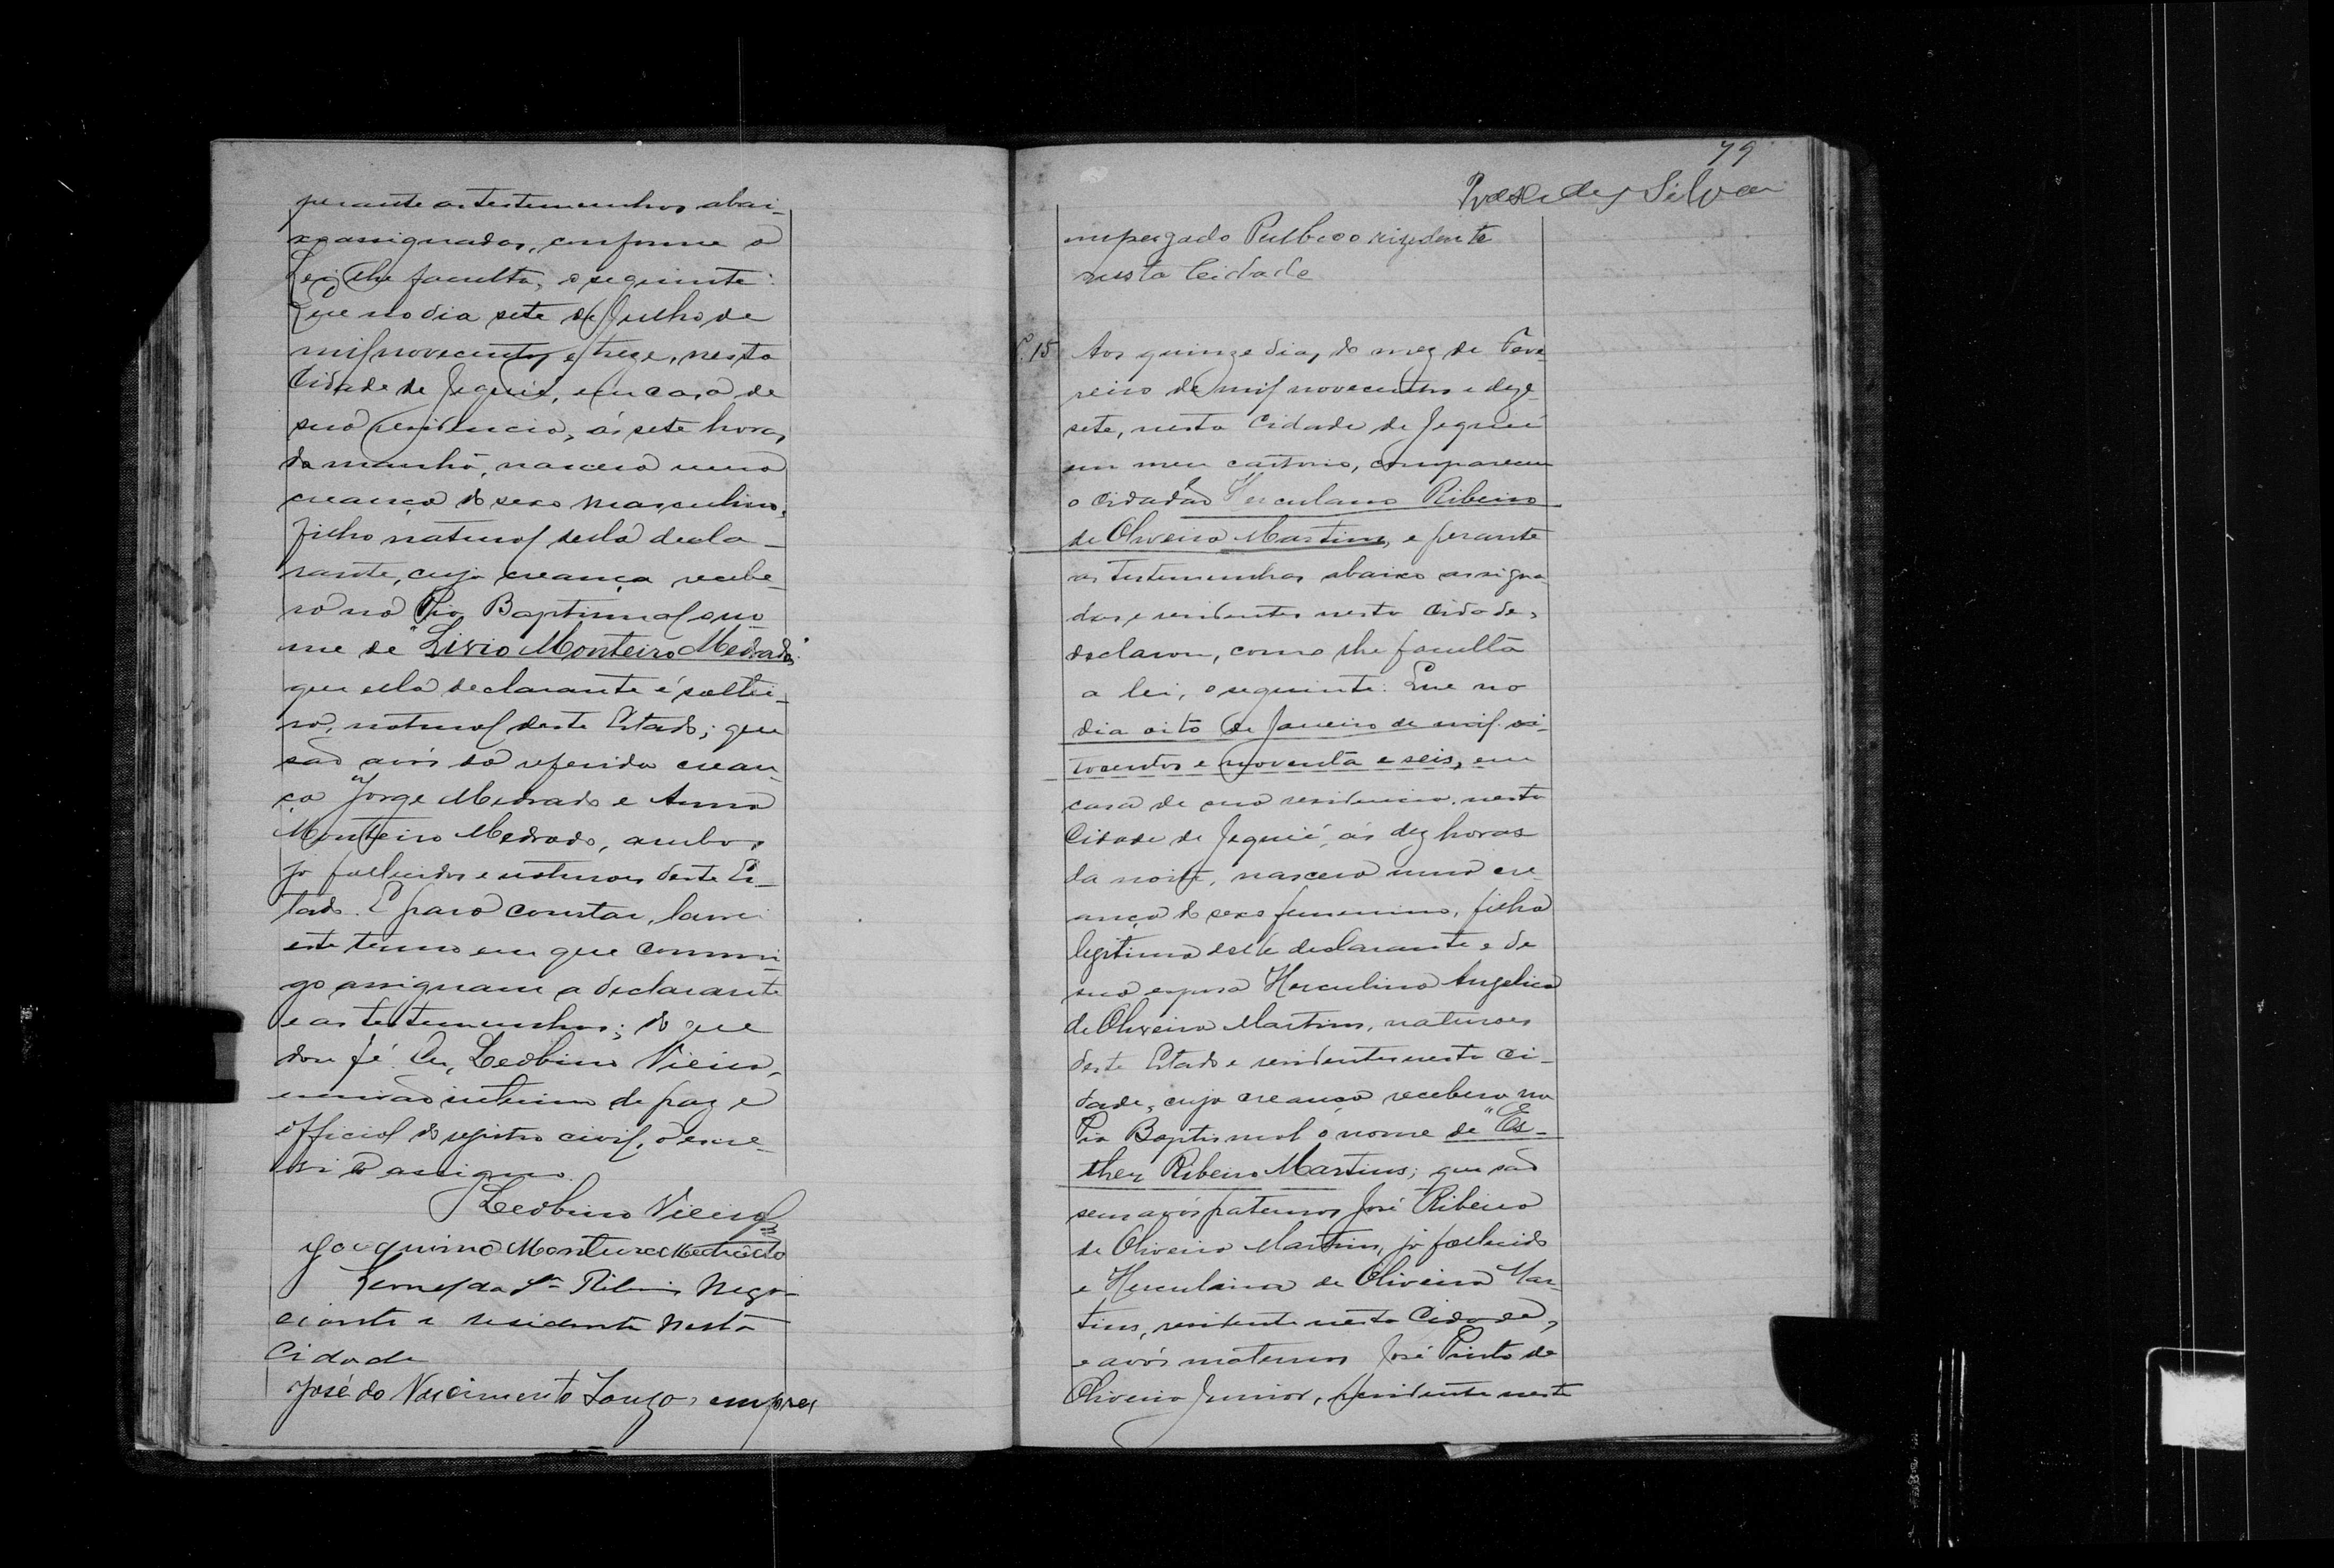 perante as testemunhas abai-
xo assignadas, conforme a
Lei lhe faculta, o seguinte:
Que no dia sete de Julho de
mil novecentos e treze, nesta
Cidade de Jequié, em casa de
sua residencia, ás sete horas
da manhã, nascera uma
creança do sexo masculino,
filho natural della decla-
rante, cuja creança recebe-
rá na Pia Baptismal o no-
me de "Livio Monteiro Medrado";
que ella declarante é soltei-
ra, natural deste Estado; que
são avós da referida crean-
ça Jorge Medrado e Anna
Monteiro Medrado, ambos
já fallecidos e naturaes deste Es-
tado. E para constar, lavrei
este termo em que commi-
go assignam a declarante
e as testemunhas; do que
dou fé. Eu, Leobino Vieira,
escrivão interino de paz e
official do registro civil, o escre-
vi e assigno.
Leobino Vieira
Joaquina Monteiro Medrado
Ribeiro Nego-
ciante e residente nesta
Cidade
José do Nascimento Souza, empre
79
Silva
impregado Publico rizidente
nesta Cidade
15 Aos quinze dias do mez de Feve-
reiro de mil novecentos e deze-
sete, nesta Cidade de Jequié
em meu cartorio, compareceu
o cidadão Herculano Ribeiro
de Oliveira Martins, e perante
as testemunhas abaixo assigna-
das e residentes nesta cidade,
declarou, como lhe faculta
a lei, o seguinte: Que no
dia oito de Janeiro de mil oi-
tocentos e noventa e seis, em
casa de sua residencia, nesta
Cidade de Jequié, ás dez horas
da noite, nascera uma cre-
ança do sexo femenino, filha
legitima delle declarante e de
sua esposa Herculina Angelica
de Oliveira Martins, naturaes
deste Estado e residentes nesta ci-
dade, cuja creança recebera na
Pia Baptismal o nome de "Es-
ther Ribeiro Martins; que são
seus avós paternos José Ribeiro
de Oliveira Martins, já fallecido
e Herculana de Oliveira Mar-
tins, residente nesta Cidade,
e avós maternos José Pinto de
Oliveira Junior, residente nesta